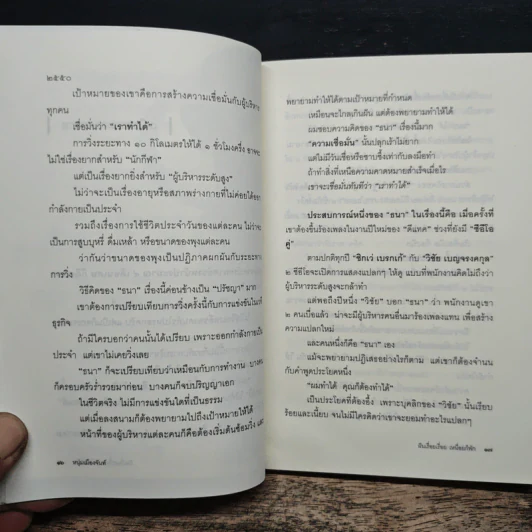 ๒๕๕๐
เป้าหมายของเขาคือการสร้างความเชื่อมั่นกับผู้บริหาร
ทุกคน
เชื่อมั่นว่า "เราทำได้"
การวิ่งระยะทาง ๑๐ กิโลเมตรให้ได้ ๑ ชั่วโมงครึ่ง อาจจะ
ไม่ใช่เรื่องยากสำหรับ "นักกีฬา"
แต่เป็นเรื่องยากยิ่งสำหรับ "ผู้บริหารระดับสูง"
ไม่ว่าจะเป็นเรื่องอายุหรือสภาพร่างกายที่ไม่ค่อยได้ออก
กำลังกายเป็นประจำ
รวมถึงเรื่องการใช้ชีวิตประจำวันของแต่ละคน ไม่ว่าจะ
เป็นการสูบบุหรี่ ดื่มเหล้า หรือขนาดของพุงแต่ละคน
ว่ากันว่าขนาดของพุงเป็นปฏิภาคผกผันกับระยะทาง
การวิ่ง
วิธีคิดของ "ธนา" เรื่องนี้ค่อนข้างเป็น "ปรัชญา" มาก
เขาต้องการเปรียบเทียบการวิ่งครั้งนี้กับการแข่งขันใน
ธุรกิจ
ถ้ามีใครบอกว่าคนนั้นได้เปรียบ เพราะออกกำลังกายเป็น
ประจำ แต่เขาไม่เคยวิ่งเลย
"ธนา" ก็จะเปรียบเทียบว่าเหมือนกับการทำงาน บางคน
ก็ครอบครัวร่ำรวยมาก่อน บางคนก็จบปริญญาเอก
ในชีวิตจริง ไม่มีการแข่งขันใดที่เป็นธรรม
แต่เมื่อลงสนามก็ต้องพยายามไปถึงเป้าหมายให้ได้
หน้าที่ของผู้บริหารแต่ละคนก็คือต้องเริ่มต้นซ้อมวิ่ง และ
๑๖ หนุ่มเมืองจันท์
พยายามทำให้ได้ตามเป้าหมายที่กำหนด
เหมือนจะไกลเกินฝัน แต่ต้องพยายามทำให้ได้
ผมชอบความคิดของ "ธนา" เรื่องนี้มาก
"ความเชื่อมั่น" นั้นปลุกเร้าไม่ยาก
แต่ไม่มีวันเชื่อหรือซาบซึ้งเท่ากับลงมือทำ
ถ้าทำสิ่งที่เหนือความคาดหมายสำเร็จเมื่อไร
เราจะเชื่อมั่นทันทีว่า "เราทำได้"
ประสบการณ์หนึ่งของ "ธนา" ในเรื่องนี้คือ เมื่อครั้งที่
เขาต้องขึ้นร้องเพลงในงานปีใหม่ของ "ดีแทค" ช่วงที่ยังมี "ซีอีโอ
คู่"
ตามปกติทุกปี "ซิกเว่ เบรกเก้" กับ "วิชัย เบญจรงคกุล"
๒ ซีอีโอจะเปิดการแสดงแปลกๆ ให้ดู แบบที่พนักงานคิดไม่ถึงว่า
ผู้บริหารระดับสูงจะกล้าทำ
แต่พอถึงปีหนึ่ง "วิชัย" บอก "ธนา" ว่า พนักงานดูเขา
๒ คนเบื่อแล้ว น่าจะมีผู้บริหารคนอื่นมาร้องเพลงแทน เพื่อสร้าง
ความแปลกใหม่
และคนหนึ่งก็คือ "ธนา" เอง
แม้จะพยายามปฏิเสธอย่างไรก็ตาม แต่เขาก็ต้องจำนน
กับคำพูดประโยคหนึ่ง
"ผมทำได้ คุณก็ต้องทำได้"
เป็นประโยคที่ต้องอึ้ง เพราะบุคลิกของ "วิชัย" นั้นเรียบ
ร้อยและเนี้ยบ จนไม่มีใครคิดว่าเขาจะยอมทำอะไรแปลกๆ
ฝันเรื่อยเปื่อย เหนื่อยก็พัก ๑๗